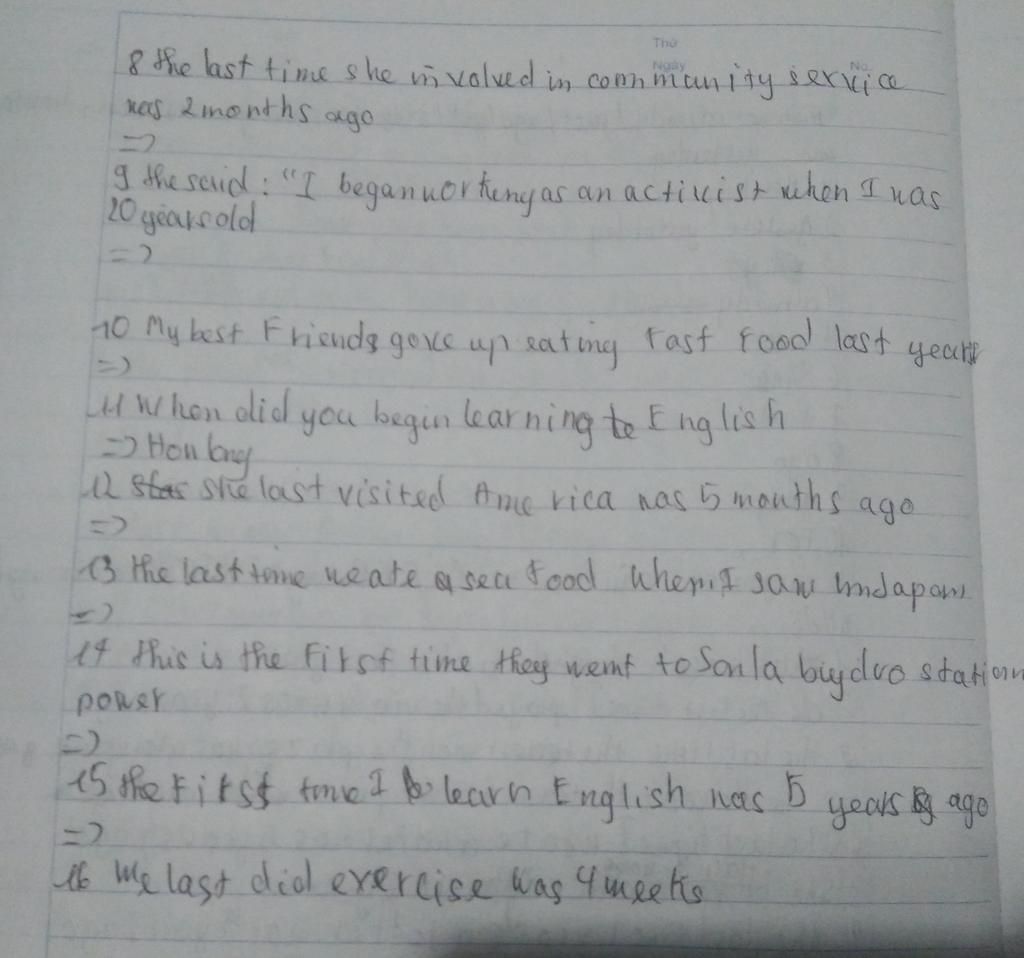 Thứ
Ngày No.
8 the last time she involved in community service
was 2 months ago
=>
9 the said : "I began working as an activist when I was
20 years old
=>
10 My best Friends gove up eating fast food last years
=>
11 When did you begin learning to English
=> How long
12 she last visited America was 5 months ago
=>
13 the last time we ate a sea food when I saw
=>
14 this is the First time they went to Sonla station
power
=>
15 the First time I learn English was 5 years ago
=>
16 We last did exercise was 4 weeks